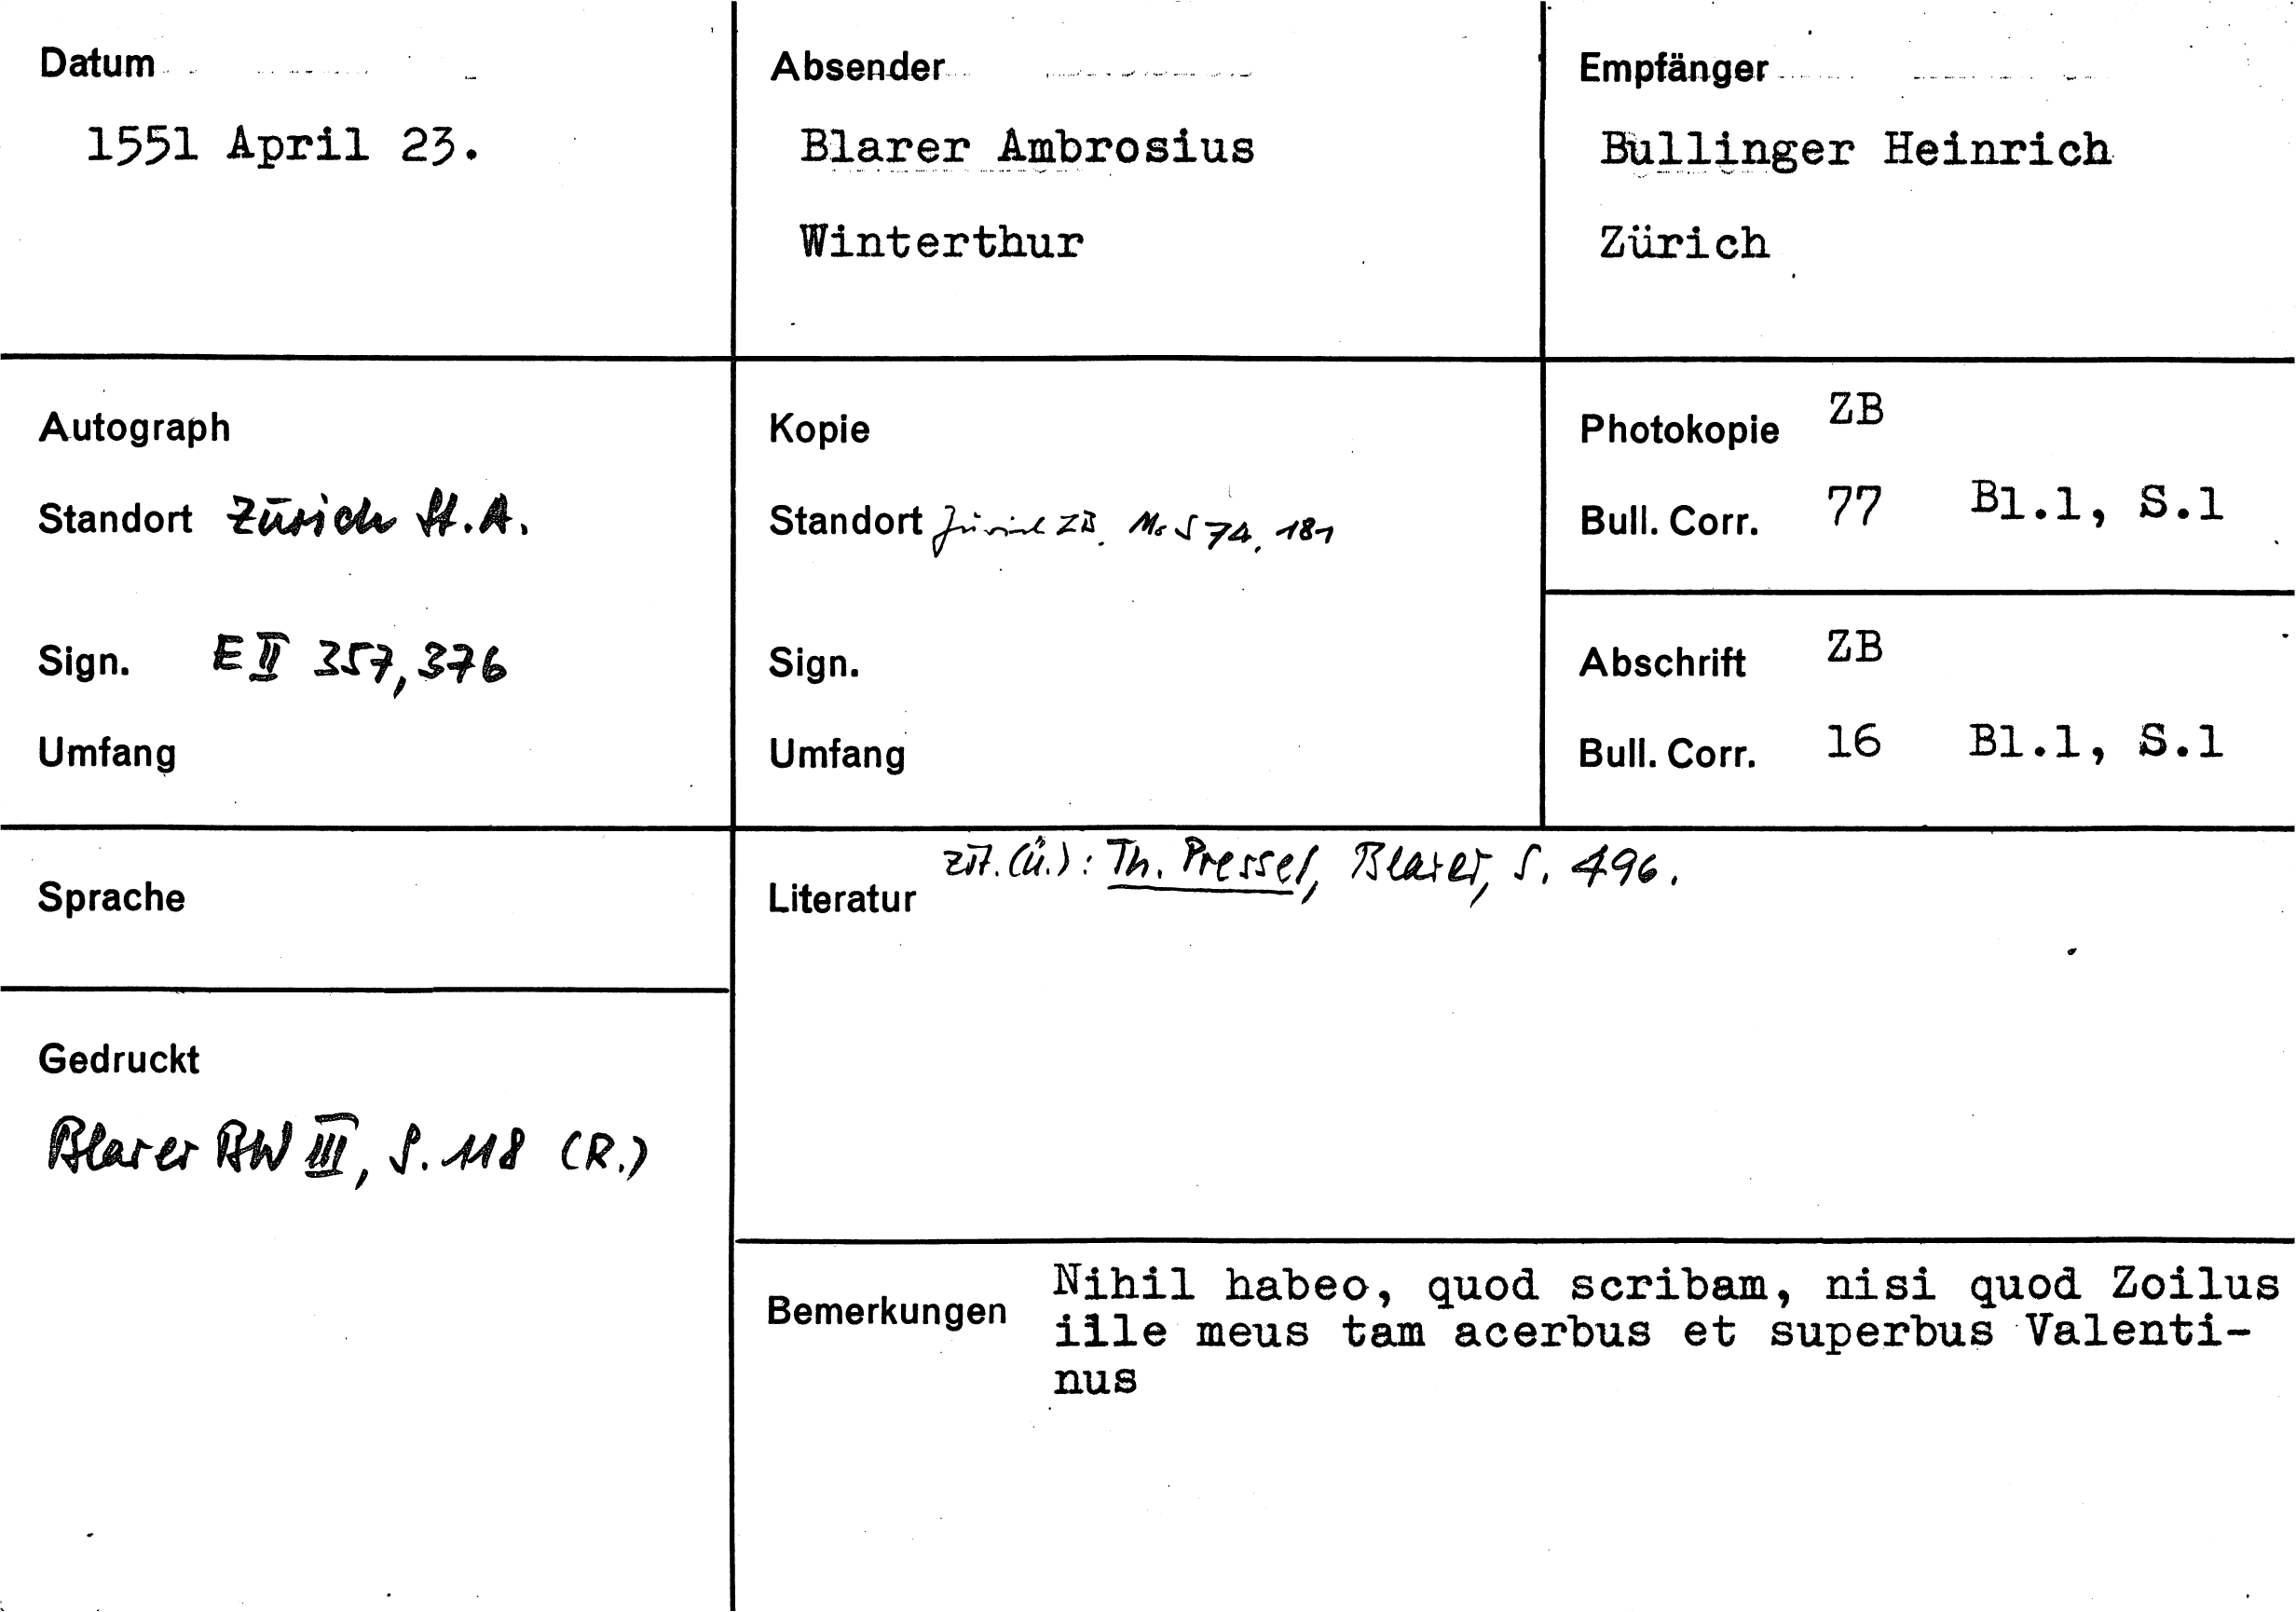 Datum
1551 April 23.
Absender
Blarer Ambrosius
Winterthur
Empfänger
Bullinger Heinrich
Zürich
Autograph
Standort Zürich St.A.
Sign. E II 357,376
Umfang
Kopie
Standort Zürich ZB. Ms S 74, 181
Sign.
Umfang
Photokopie ZB
Bull. Corr. 77 Bl.1, S.1
Abschrift ZB
Bull. Corr. 16 Bl.1, S.1
Sprache
Gedruckt
Blarer BW III, S. 118 (R.)
Literatur zit. (Ü.): Th. Pressel, Blarer, S. 496.
Bemerkungen
Nihil habeo, quod scribam, nisi quod Zoilus
ille meus tam acerbus et superbus Valenti-
nus